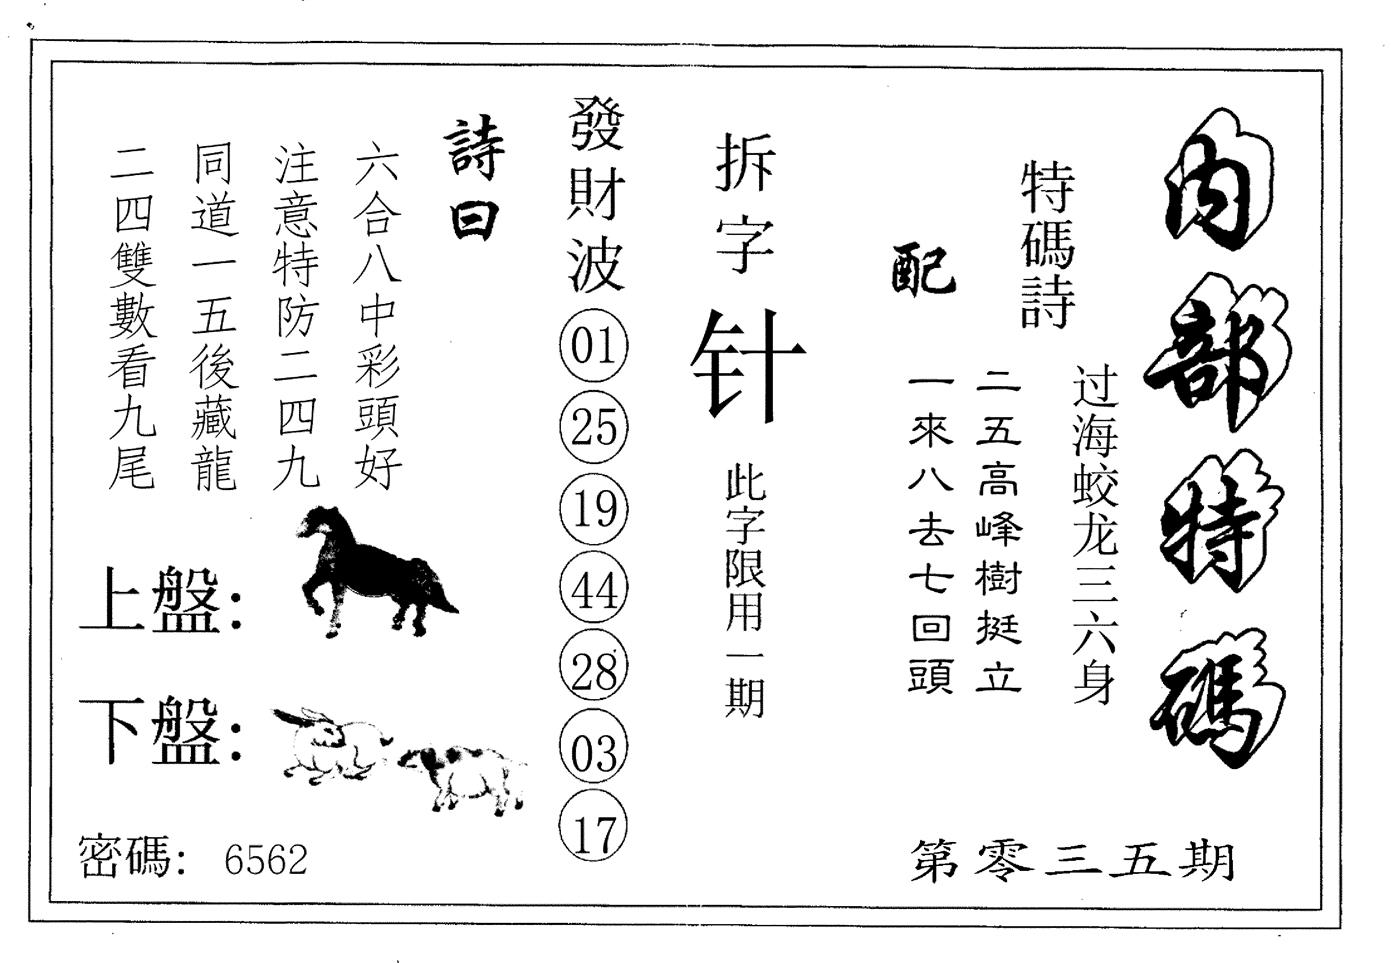 内部特碼
特碼詩
过海蛟龙三六身
配
二五高峰樹挺立
一來八去七回頭
第零三五期
拆字
针
此字限用一期
發財波
01
25
19
44
28
03
17
詩曰
六合八中彩頭好
注意特防二四九
同道一五後藏龍
二四雙數看九尾
上盤：
下盤：
密碼： 6562